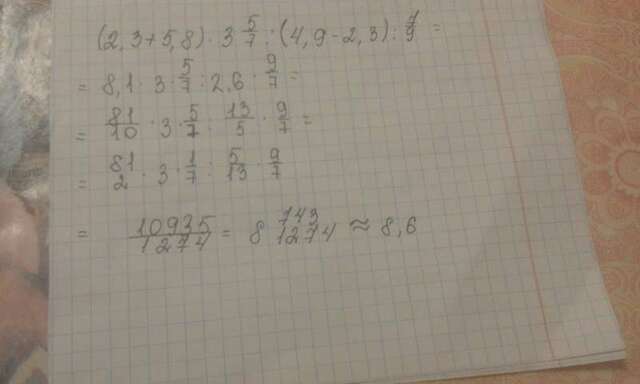 (2,3+5,8) · 3 5/7 : (4,9-2,3) : 7/9 =
= 8,1 · 3 · 5/7 : 2,6 · 9/7 =
= 81/10 · 3 · 5/7 : 13/5 · 9/7 =
= 81/2 · 3 · 1/7 · 5/13 · 9/7
= 10935/1274 = 8 743/1274 ≈ 8,6